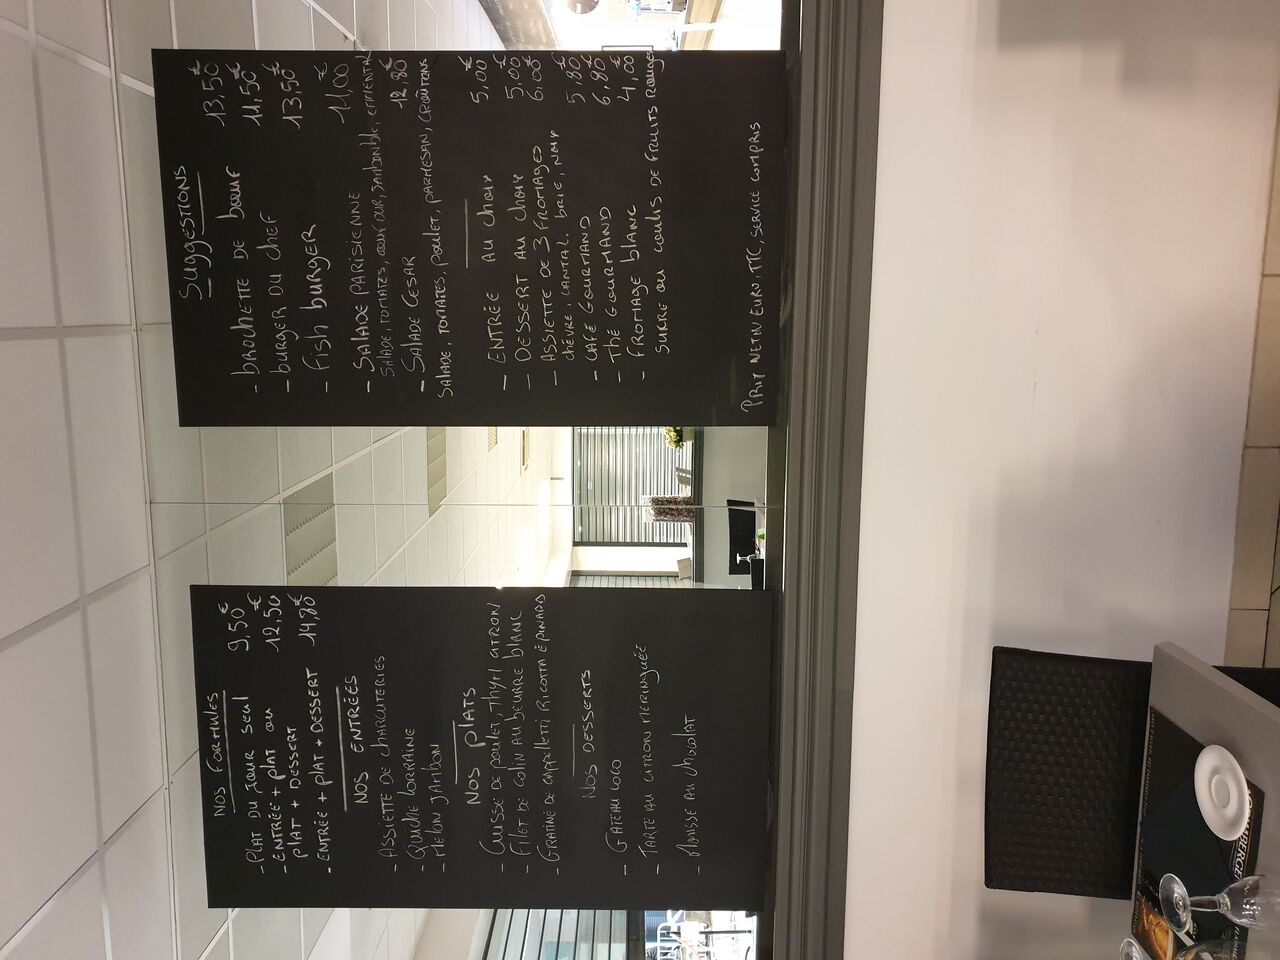 NOS FORMULES
- PLAT DU JOUR SEUL 9,50€
- ENTRÉE + PLAT OU 12,50€
PLAT + DESSERT
- ENTRÉE + PLAT + DESSERT 14,80€
NOS ENTRÉES
- ASSIETTE DE CHARCUTERIES
- Quiche LORRAINE
- Melon JAMBON
NOS PLATS
- Cuisse de poulet, Thym CITRON
- Filet de colin AU BEURRE BLANC
- GRATINÉ DE CAPPELLETTI RICOTTA ÉPINARD
NOS DESSERTS
- GATEAU COCO
- TARTE AU CITRON MERINGUÉE
- Mousse AU chocolAT
SUGGESTIONS
- BROCHETTE DE bœuf 13,50€
- BURGER DU CHEF 11,50€
- FISH BURGER 13,50€
- SALADE PARISIENNE 11,00€
SALADE, TOMATES, ŒUF DUR, JAMBON blc, EMMENTAL
- SALADE CESAR 12,80€
SALADE, TOMATES, POULET, PARMESAN, CROÛTONS
- ENTRÉE AU CHOIX 5,00€
- DESSERT AU CHOIX 5,00€
- ASSIETTE DE 3 FROMAGES 6,00€
CHÈVRE, CANTAL, BRIE, NOIX
- CAFÉ GOURMAND 5,80€
- THÉ GOURMAND 6,80€
- FROMAGE BLANC 4,00€
SUCRE OU COULIS DE FRUITS ROUGES
PRIX NET IN EURO, TTC, SERVICE COMPRIS